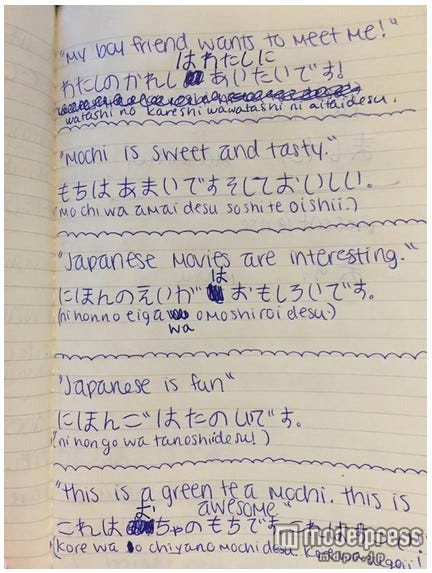 "My boy friend wants to meet me!"
はわたしに
わたしのかれし あいたいです!
watashi no kareshi wawatashi ni aitaidesu.
"Mochi is sweet and tasty."
もちは あまいですそしておいしい。
(mo chi wa amai desu soshite oishii.)
"Japanese movies are interesting."
は
にほんのえいが おもしろいです。
(ni honno eiga omoshiroi desu.)
wa
"Japanese is fun"
にほんごはたのしいです。
(ni hon go wa tanoshiidesu!)
"This is a green tea mochi. this is
お awesome"
これは ちゃのもちです
modelpress
(kore wa o chiyano mochi desu
mdpr.jp